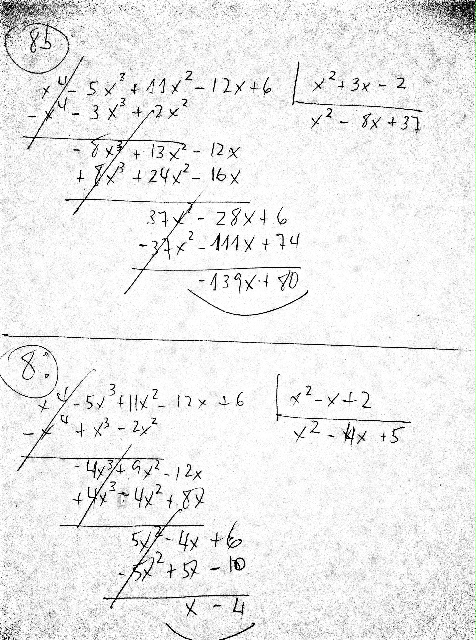 8b
x⁴ - 5x³ + 11x² - 12x + 6 | x² + 3x - 2
- x⁴ - 3x³ + 2x² x² - 8x + 37
- 8x³ + 13x² - 12x
+ 8x³ + 24x² - 16x
37x² - 28x + 6
- 37x² - 111x + 74
- 139x + 80
8:
x⁴ - 5x³ + 11x² - 12x + 6 | x² - x + 2
- x⁴ + x³ - 2x² x² - 4x + 5
- 4x³ + 9x² - 12x
+ 4x³ - 4x² + 8x
5x² - 4x + 6
- 5x² + 5x - 10
x - 4